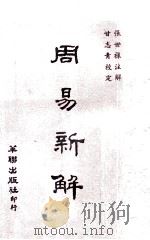 張世祿注解
甘志青校定
周易新解
華聯出版社印行